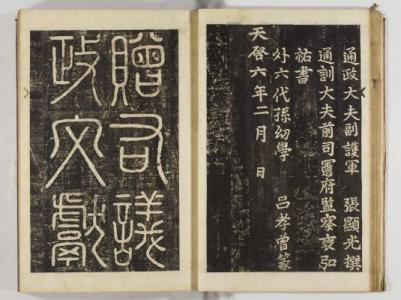 通政大夫副護軍 張顯光撰
通訓大夫前司憲府監察裵弘
祐書
外六代孫幼學 呂孝曾篆
天啓六年二月 日
贈右議
政文獻